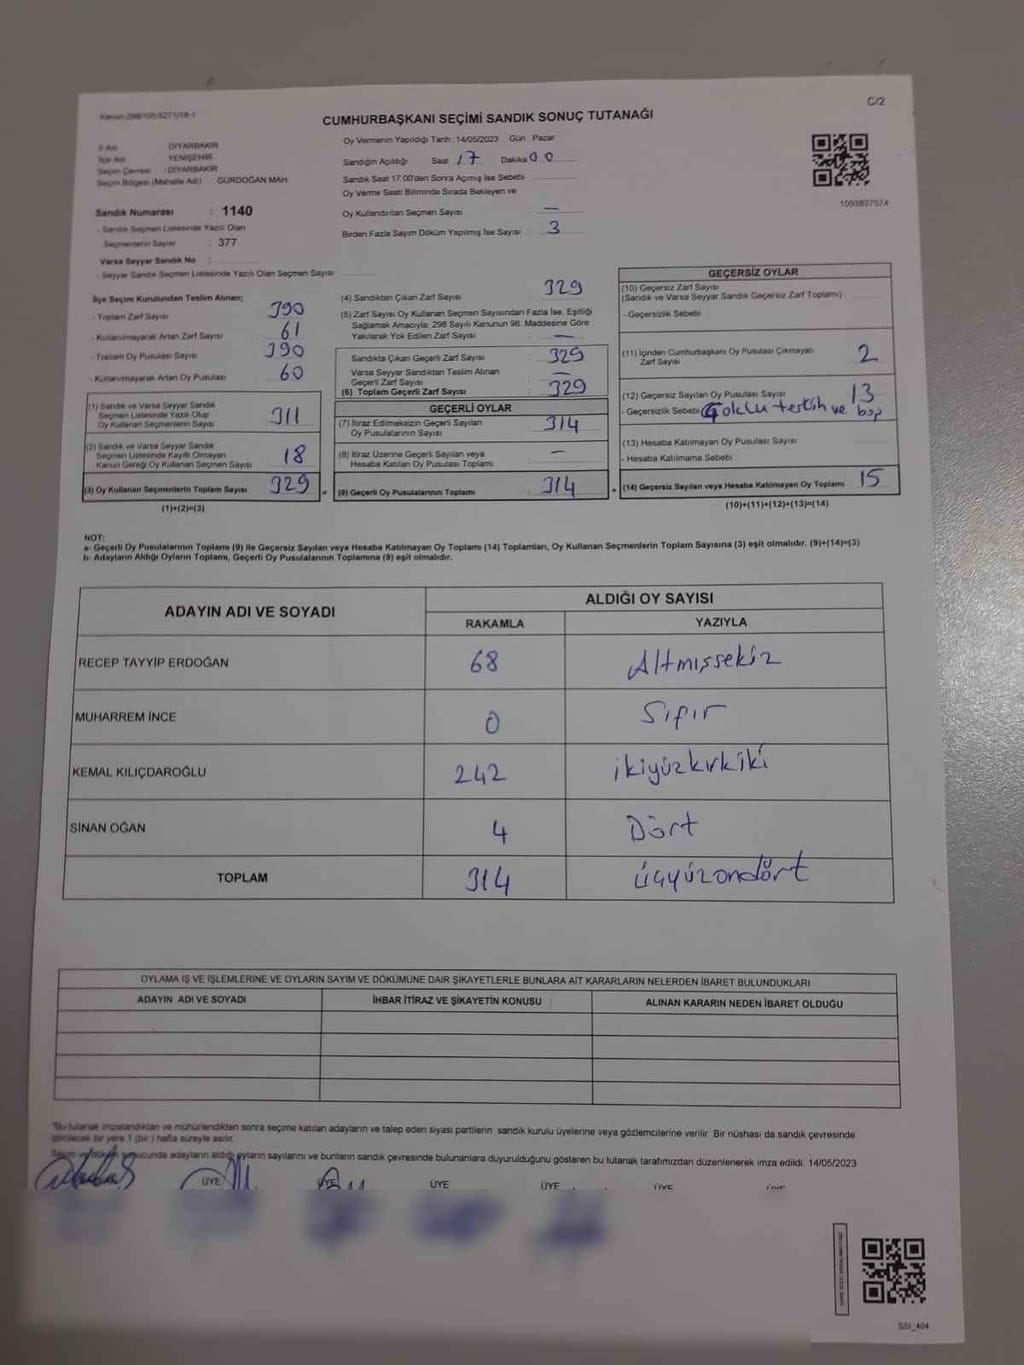 Kanun:298/105;6271/18-1
C/2
CUMHURBAŞKANI SEÇİMİ SANDIK SONUÇ TUTANAĞI
İl Adı : DİYARBAKIR
İlçe Adı : YENİŞEHİR
Seçim Çevresi : DİYARBAKIR
Seçim Bölgesi (Mahalle Adı) : GÜRDOĞAN MAH.
Sandık Numarası : 1140
- Sandık Seçmen Listesinde Yazılı Olan
Seçmenlerin Sayısı : 377
Varsa Seyyar Sandık No :
- Seyyar Sandık Seçmen Listesinde Yazılı Olan Seçmen Sayısı
Oy Vermenin Yapıldığı Tarih :14/05/2023 Gün : Pazar
Sandığın Açıldığı Saat 17 Dakika 00
Sandık Saat 17:00'den Sonra Açılmış İse Sebebi
Oy Verme Saati Bitiminde Sırada Bekleyen ve
Oy Kullandırılan Seçmen Sayısı —
Birden Fazla Sayım Döküm Yapılmış İse Sayısı 3
1093837574
İlçe Seçim Kurulundan Teslim Alınan;
- Toplam Zarf Sayısı 390
- Kullanılmayarak Artan Zarf Sayısı 61
- Toplam Oy Pusulası Sayısı 390
- Kullanılmayarak Artan Oy Pusulası 60
(1) Sandık ve Varsa Seyyar Sandık
Seçmen Listesinde Yazılı Olup
Oy Kullanan Seçmenlerin Sayısı 311
(2) Sandık ve Varsa Seyyar Sandık
Seçmen Listesinde Kayıtlı Olmayan
Kanun Gereği Oy Kullanan Seçmen Sayısı 18
(3) Oy Kullanan Seçmenlerin Toplam Sayısı 329 =
(1)+(2)=(3)
(4) Sandıktan Çıkan Zarf Sayısı 329
(5) Zarf Sayısı Oy Kullanan Seçmen Sayısından Fazla İse, Eşitliği
Sağlamak Amacıyla; 298 Sayılı Kanunun 98. Maddesine Göre
Yakılarak Yok Edilen Zarf Sayısı —
Sandıkta Çıkan Geçerli Zarf Sayısı 329
Varsa Seyyar Sandıktan Teslim Alınan
Geçerli Zarf Sayısı —
(6) Toplam Geçerli Zarf Sayısı 329
GEÇERLİ OYLAR
(7) İtiraz Edilmeksizin Geçerli Sayılan
Oy Pusulalarının Sayısı 314
(8) İtiraz Üzerine Geçerli Sayılan veya
Hesaba Katılan Oy Pusulası Toplamı —
(9) Geçerli Oy Pusulalarının Toplamı 314 +
GEÇERSİZ OYLAR
(10) Geçersiz Zarf Sayısı
(Sandık ve Varsa Seyyar Sandık Geçersiz Zarf Toplamı)
- Geçersizlik Sebebi
(11) İçinden Cumhurbaşkanı Oy Pusulası Çıkmayan
Zarf Sayısı 2
(12) Geçersiz Sayılan Oy Pusulası Sayısı 13
- Geçersizlik Sebebi Çoklu tercih ve boş
(13) Hesaba Katılmayan Oy Pusulası Sayısı
- Hesaba Katılmama Sebebi :
(14) Geçersiz Sayılan veya Hesaba Katılmayan Oy Toplamı 15
(10)+(11)+(12)+(13)=(14)
NOT:
a- Geçerli Oy Pusulalarının Toplamı (9) ile Geçersiz Sayılan veya Hesaba Katılmayan Oy Toplamı (14) Toplamları, Oy Kullanan Seçmenlerin Toplam Sayısına (3) eşit olmalıdır. (9)+(14)=(3)
b- Adayların Aldığı Oyların Toplamı, Geçerli Oy Pusulalarının Toplamına (9) eşit olmalıdır.
ADAYIN ADI VE SOYADI
ALDIĞI OY SAYISI
RAKAMLA YAZIYLA
RECEP TAYYİP ERDOĞAN 68 Altmışsekiz
MUHARREM İNCE 0 Sıfır
KEMAL KILIÇDAROĞLU 242 ikiyüzkırkiki
SİNAN OĞAN 4 Dört
TOPLAM 314 üçyüzondört
OYLAMA İŞ VE İŞLEMLERİNE VE OYLARIN SAYIM VE DÖKÜMÜNE DAİR ŞİKAYETLERLE BUNLARA AİT KARARLARIN NELERDEN İBARET BULUNDUKLARI
ADAYIN ADI VE SOYADI İHBAR İTİRAZ VE ŞİKAYETİN KONUSU ALINAN KARARIN NEDEN İBARET OLDUĞU
"Bu tutanak imzalandıktan ve mühürlendikten sonra seçime katılan adayların ve talep eden siyasi partilerin sandık kurulu üyelerine veya gözlemcilerine verilir. Bir nüshası da sandık çevresinde
görülecek bir yere 1 (bir) hafta süreyle asılır.
Sayım ve döküm sonucunda adayların aldığı oyların sayılarını ve bunların sandık çevresinde bulunanlara duyurulduğunu gösteren bu tutanak tarafımızdan düzenlenerek imza edildi. 14/05/2023
ÜYE ÜYE ÜYE ÜYE ÜYE
SSI_404